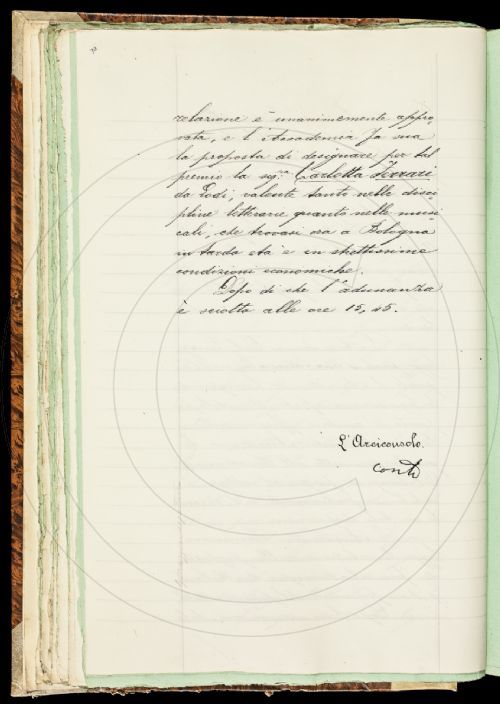 relazione è unanimemente appro-
vata, e l'Accademia fa sua
la proposta di designare per tal
premio la sig.ra Carlotta Ferrari
da Lodi, valente tanto nelle disci-
pline letterarie quanto nelle musi-
cali, che trovasi ora a Bologna
in tarda età e in strettissime
condizioni economiche.
Dopo di che l'adunanza
è sciolta alle ore 15,45.
L'Arciconsolo
Conti